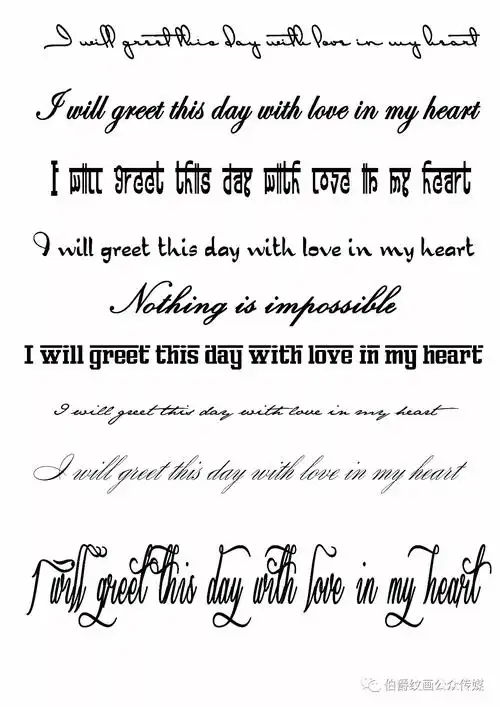 I will greet this day with love in my heart
I will greet this day with love in my heart
I will greet this day with love in my heart
I will greet this day with love in my heart
Nothing is impossible
I will greet this day with love in my heart
I will greet this day with love in my heart
I will greet this day with love in my heart
I will greet this day with love in my heart
伯爵纹画公众传媒